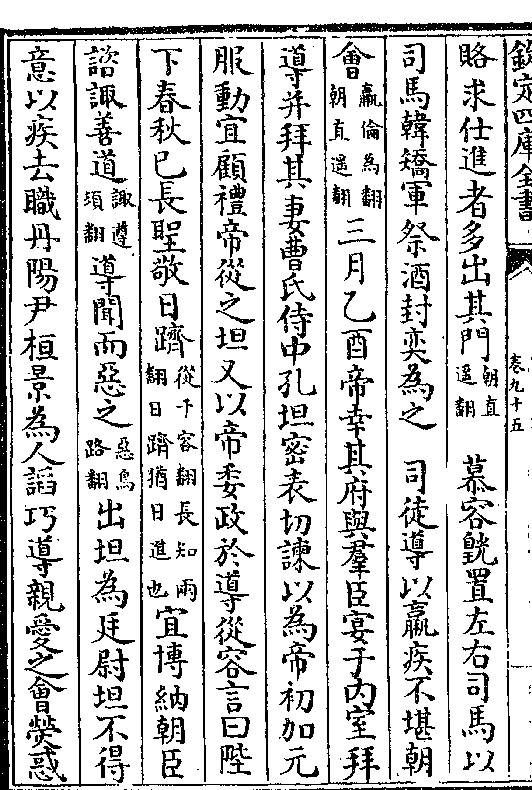 欽定四庫全書
卷九十五
賂求仕進者多出其門朝直遥翻 慕容皝置左右司馬以
司馬韓矯軍祭酒封奕為之 司徒導以羸疾不堪朝
會羸倫為翻朝直遥翻三月乙酉帝幸其府與羣臣宴于内室拜
導并拜其妻曹氏侍中孔坦密表切諫以為帝初加元
服動宜顧禮帝從之坦又以帝委政於導從容言曰陛
下春秋已長聖敬日躋從千容翻長知兩翻日躋猶日進也宜博納朝臣
諮諏善道諏遵須翻導聞而惡之惡烏路翻出坦為廷尉坦不得
意以疾去職丹陽尹桓景為人謟巧導親愛之會熒惑